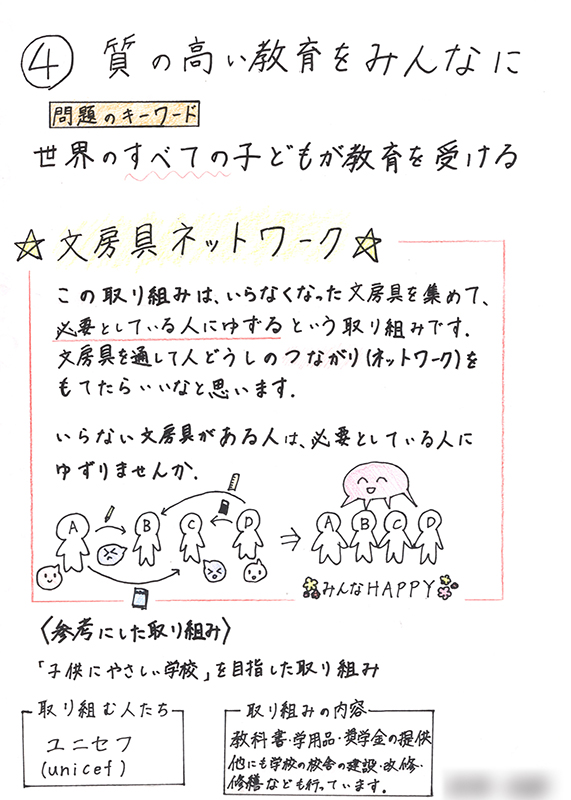 ④ 質の高い教育をみんなに
問題のキーワード
世界のすべての子どもが教育を受ける
☆文房具ネットワーク☆
この取り組みは、いらなくなった文房具を集めて、
必要としている人にゆずるという取り組みです.
文房具を通して人どうしのつながり(ネットワーク)を
もてたらいいなと思います.
いらない文房具がある人は、必要としている人に
ゆずりませんか.
A B C D ⇒ A B C D
みんなHAPPY
〈参考にした取り組み〉
「子供にやさしい学校」を目指した取り組み
取り組む人たち
ユニセフ
(unicef)
取り組みの内容
教科書・学用品・奨学金の提供
他にも学校の校舎の建設・改修・
修繕なども行っています.